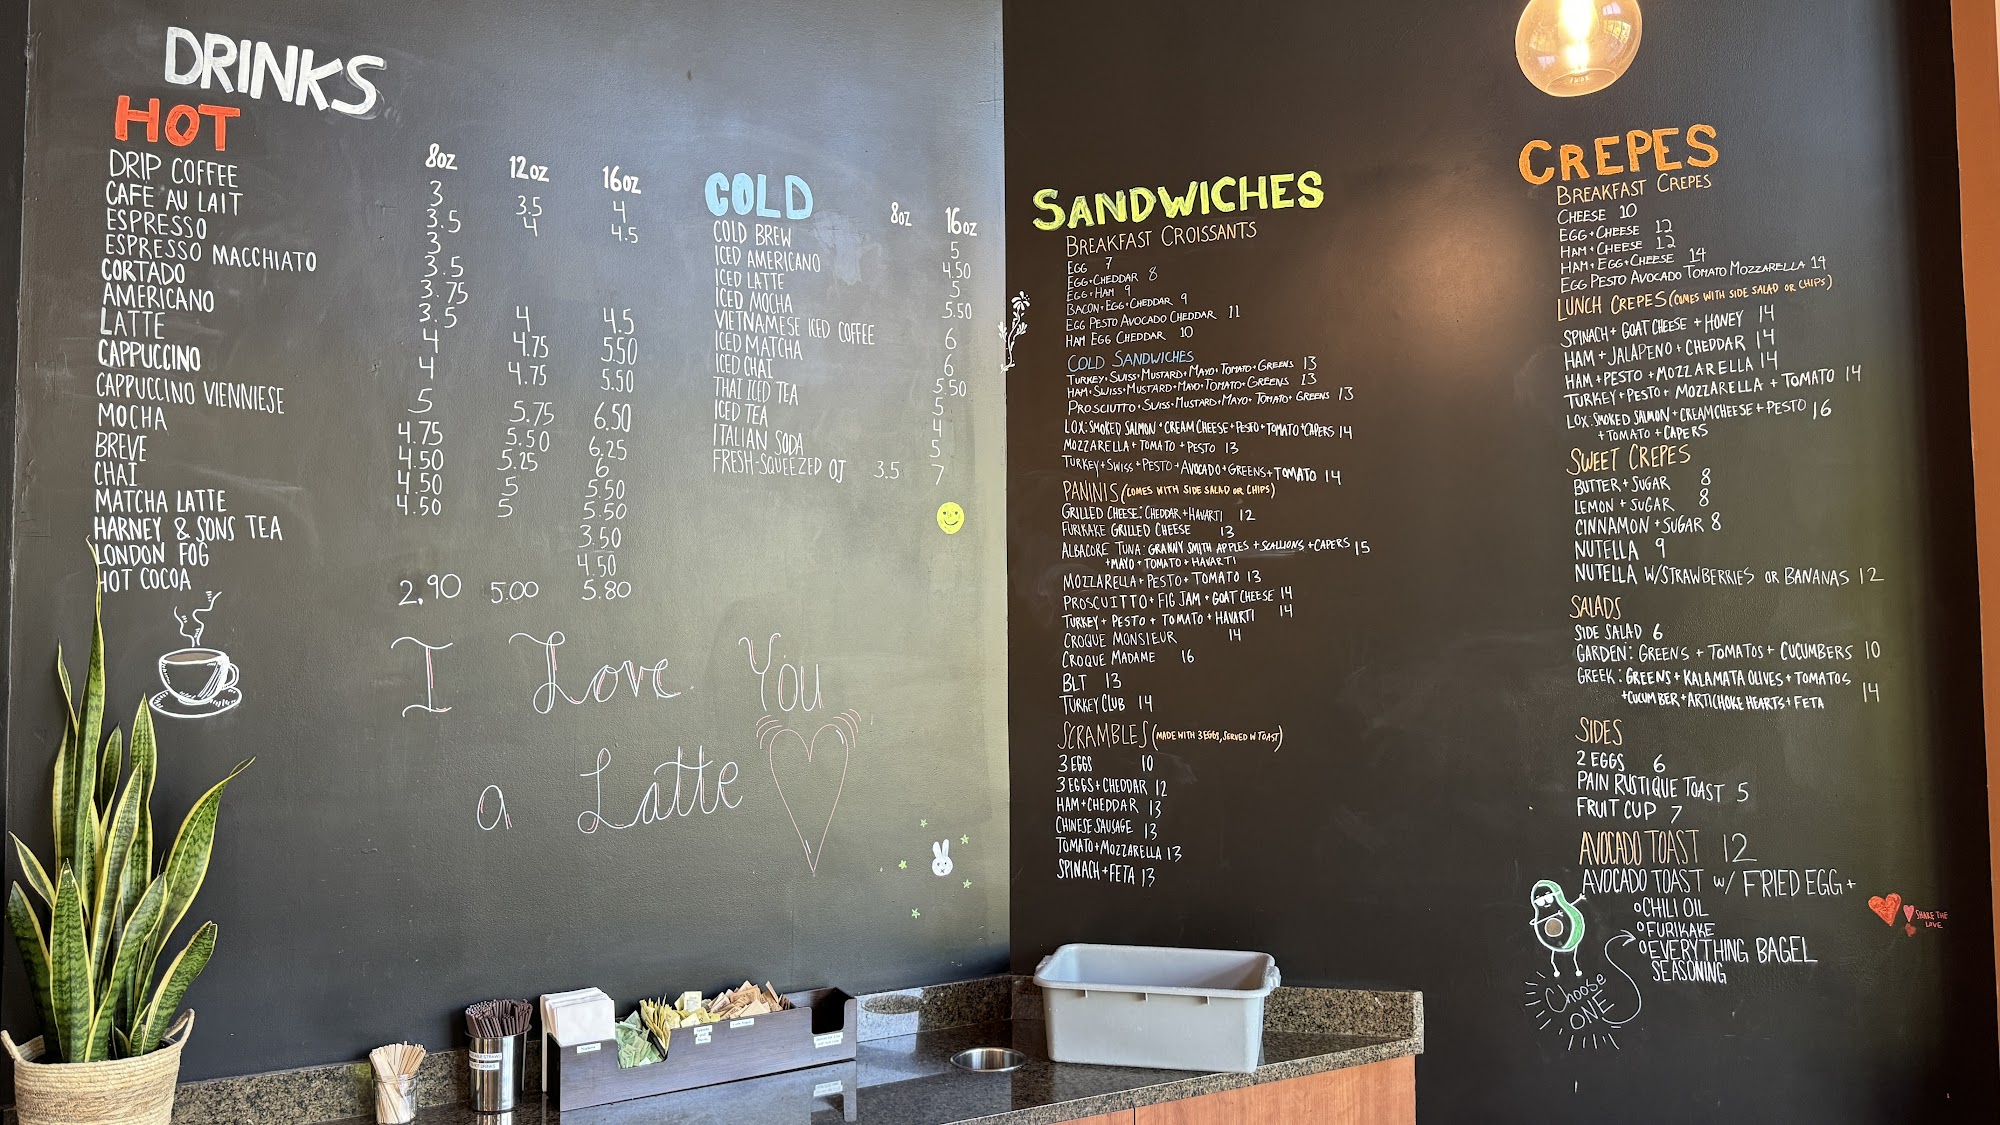 DRINKS
HOT 8oz 12oz 16oz
DRIP COFFEE 3 3.5 4
CAFE AU LAIT 3.5 4 4.5
ESPRESSO 3
ESPRESSO MACCHIATO 3.5
CORTADO 3.75
AMERICANO 3.5 4 4.5
LATTE 4 4.75 5.50
CAPPUCCINO 4 4.75 5.50
CAPPUCCINO VIENNIESE 5 5.75 6.50
MOCHA 4.75 5.50 6.25
BREVE 4.50 5.25 6
CHAI 4.50 5 5.50
MATCHA LATTE 4.50 5 5.50
HARNEY & SONS TEA 3.50
LONDON FOG 4.50
HOT COCOA 2.90 5.00 5.80
COLD 8oz 16oz
COLD BREW 5
ICED AMERICANO 4.50
ICED LATTE 5
ICED MOCHA 5.50
VIETNAMESE ICED COFFEE 6
ICED MATCHA 6
ICED CHAI 5.50
THAI ICED TEA 5
ICED TEA 4
ITALIAN SODA 5
FRESH-SQUEEZED OJ 3.5 7
I Love You
a Latte
SANDWICHES
BREAKFAST CROISSANTS
EGG 7
EGG+CHEDDAR 8
EGG+HAM 9
BACON+EGG+CHEDDAR 9
EGG PESTO AVOCADO CHEDDAR 11
HAM EGG CHEDDAR 10
COLD SANDWICHES
TURKEY+SWISS+MUSTARD+MAYO+TOMATO+GREENS 13
HAM+SWISS+MUSTARD+MAYO+TOMATO+GREENS 13
PROSCIUTTO+SWISS+MUSTARD+MAYO+TOMATO+GREENS 13
LOX: SMOKED SALMON + CREAM CHEESE + PESTO + TOMATO + CAPERS 14
MOZZARELLA + TOMATO + PESTO 13
TURKEY + SWISS + PESTO + AVOCADO + GREENS + TOMATO 14
PANINIS (COMES WITH SIDE SALAD OR CHIPS)
GRILLED CHEESE: CHEDDAR + HAVARTI 12
FURIKAKE GRILLED CHEESE 13
ALBACORE TUNA: GRANNY SMITH APPLES + SCALLIONS + CAPERS 15
+MAYO + TOMATO + HAVARTI
MOZZARELLA + PESTO + TOMATO 13
PROSCUITTO + FIG JAM + GOAT CHEESE 14
TURKEY + PESTO + TOMATO + HAVARTI 14
CROQUE MONSIEUR 14
CROQUE MADAME 16
BLT 13
TURKEY CLUB 14
SCRAMBLES (MADE WITH 3 EGGS, SERVED W TOAST)
3 EGGS 10
3 EGGS + CHEDDAR 12
HAM + CHEDDAR 13
CHINESE SAUSAGE 13
TOMATO + MOZZARELLA 13
SPINACH + FETA 13
CREPES
BREAKFAST CREPES
CHEESE 10
EGG + CHEESE 12
HAM + CHEESE 12
HAM + EGG + CHEESE 14
EGG PESTO AVOCADO TOMATO MOZZARELLA 14
LUNCH CREPES (COMES WITH SIDE SALAD OR CHIPS)
SPINACH + GOAT CHEESE + HONEY 14
HAM + JALAPENO + CHEDDAR 14
HAM + PESTO + MOZZARELLA 14
TURKEY + PESTO + MOZZARELLA + TOMATO 14
LOX: SMOKED SALMON + CREAM CHEESE + PESTO 16
+ TOMATO + CAPERS
SWEET CREPES
BUTTER + SUGAR 8
LEMON + SUGAR 8
CINNAMON + SUGAR 8
NUTELLA 9
NUTELLA W/STRAWBERRIES OR BANANAS 12
SALADS
SIDE SALAD 6
GARDEN: GREENS + TOMATOS + CUCUMBERS 10
GREEK: GREENS + KALAMATA OLIVES + TOMATOS
+CUCUMBER + ARTICHOKE HEARTS + FETA 14
SIDES
2 EGGS 6
PAIN RUSTIQUE TOAST 5
FRUIT CUP 7
AVOCADO TOAST 12
AVOCADO TOAST W/ FRIED EGG +
CHILI OIL
FURIKAKE
EVERYTHING BAGEL
SEASONING
Choose
ONE
SHARE THE
LOVE